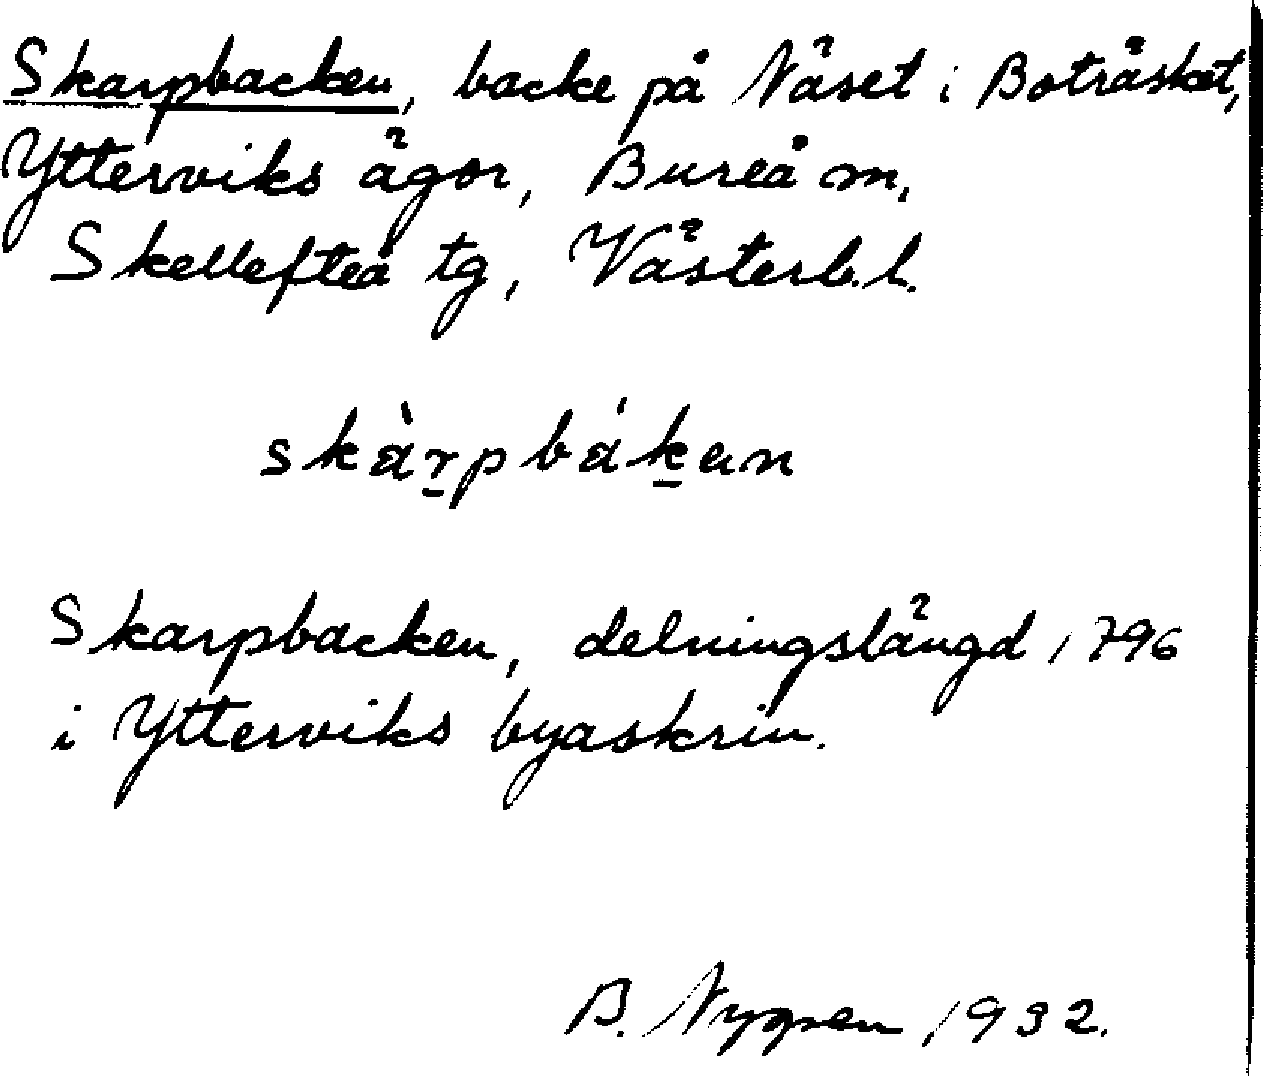 Skarpbacken, backe på Näset i Boträsket,
Ytterviks ägor, Bureå m,
Skellefteå tg, Västerb.l.
skàr̠pbák̠en
Skarpbacken, delningslängd 1796
i Ytterviks byaskrin.
B. Nygren 1932.